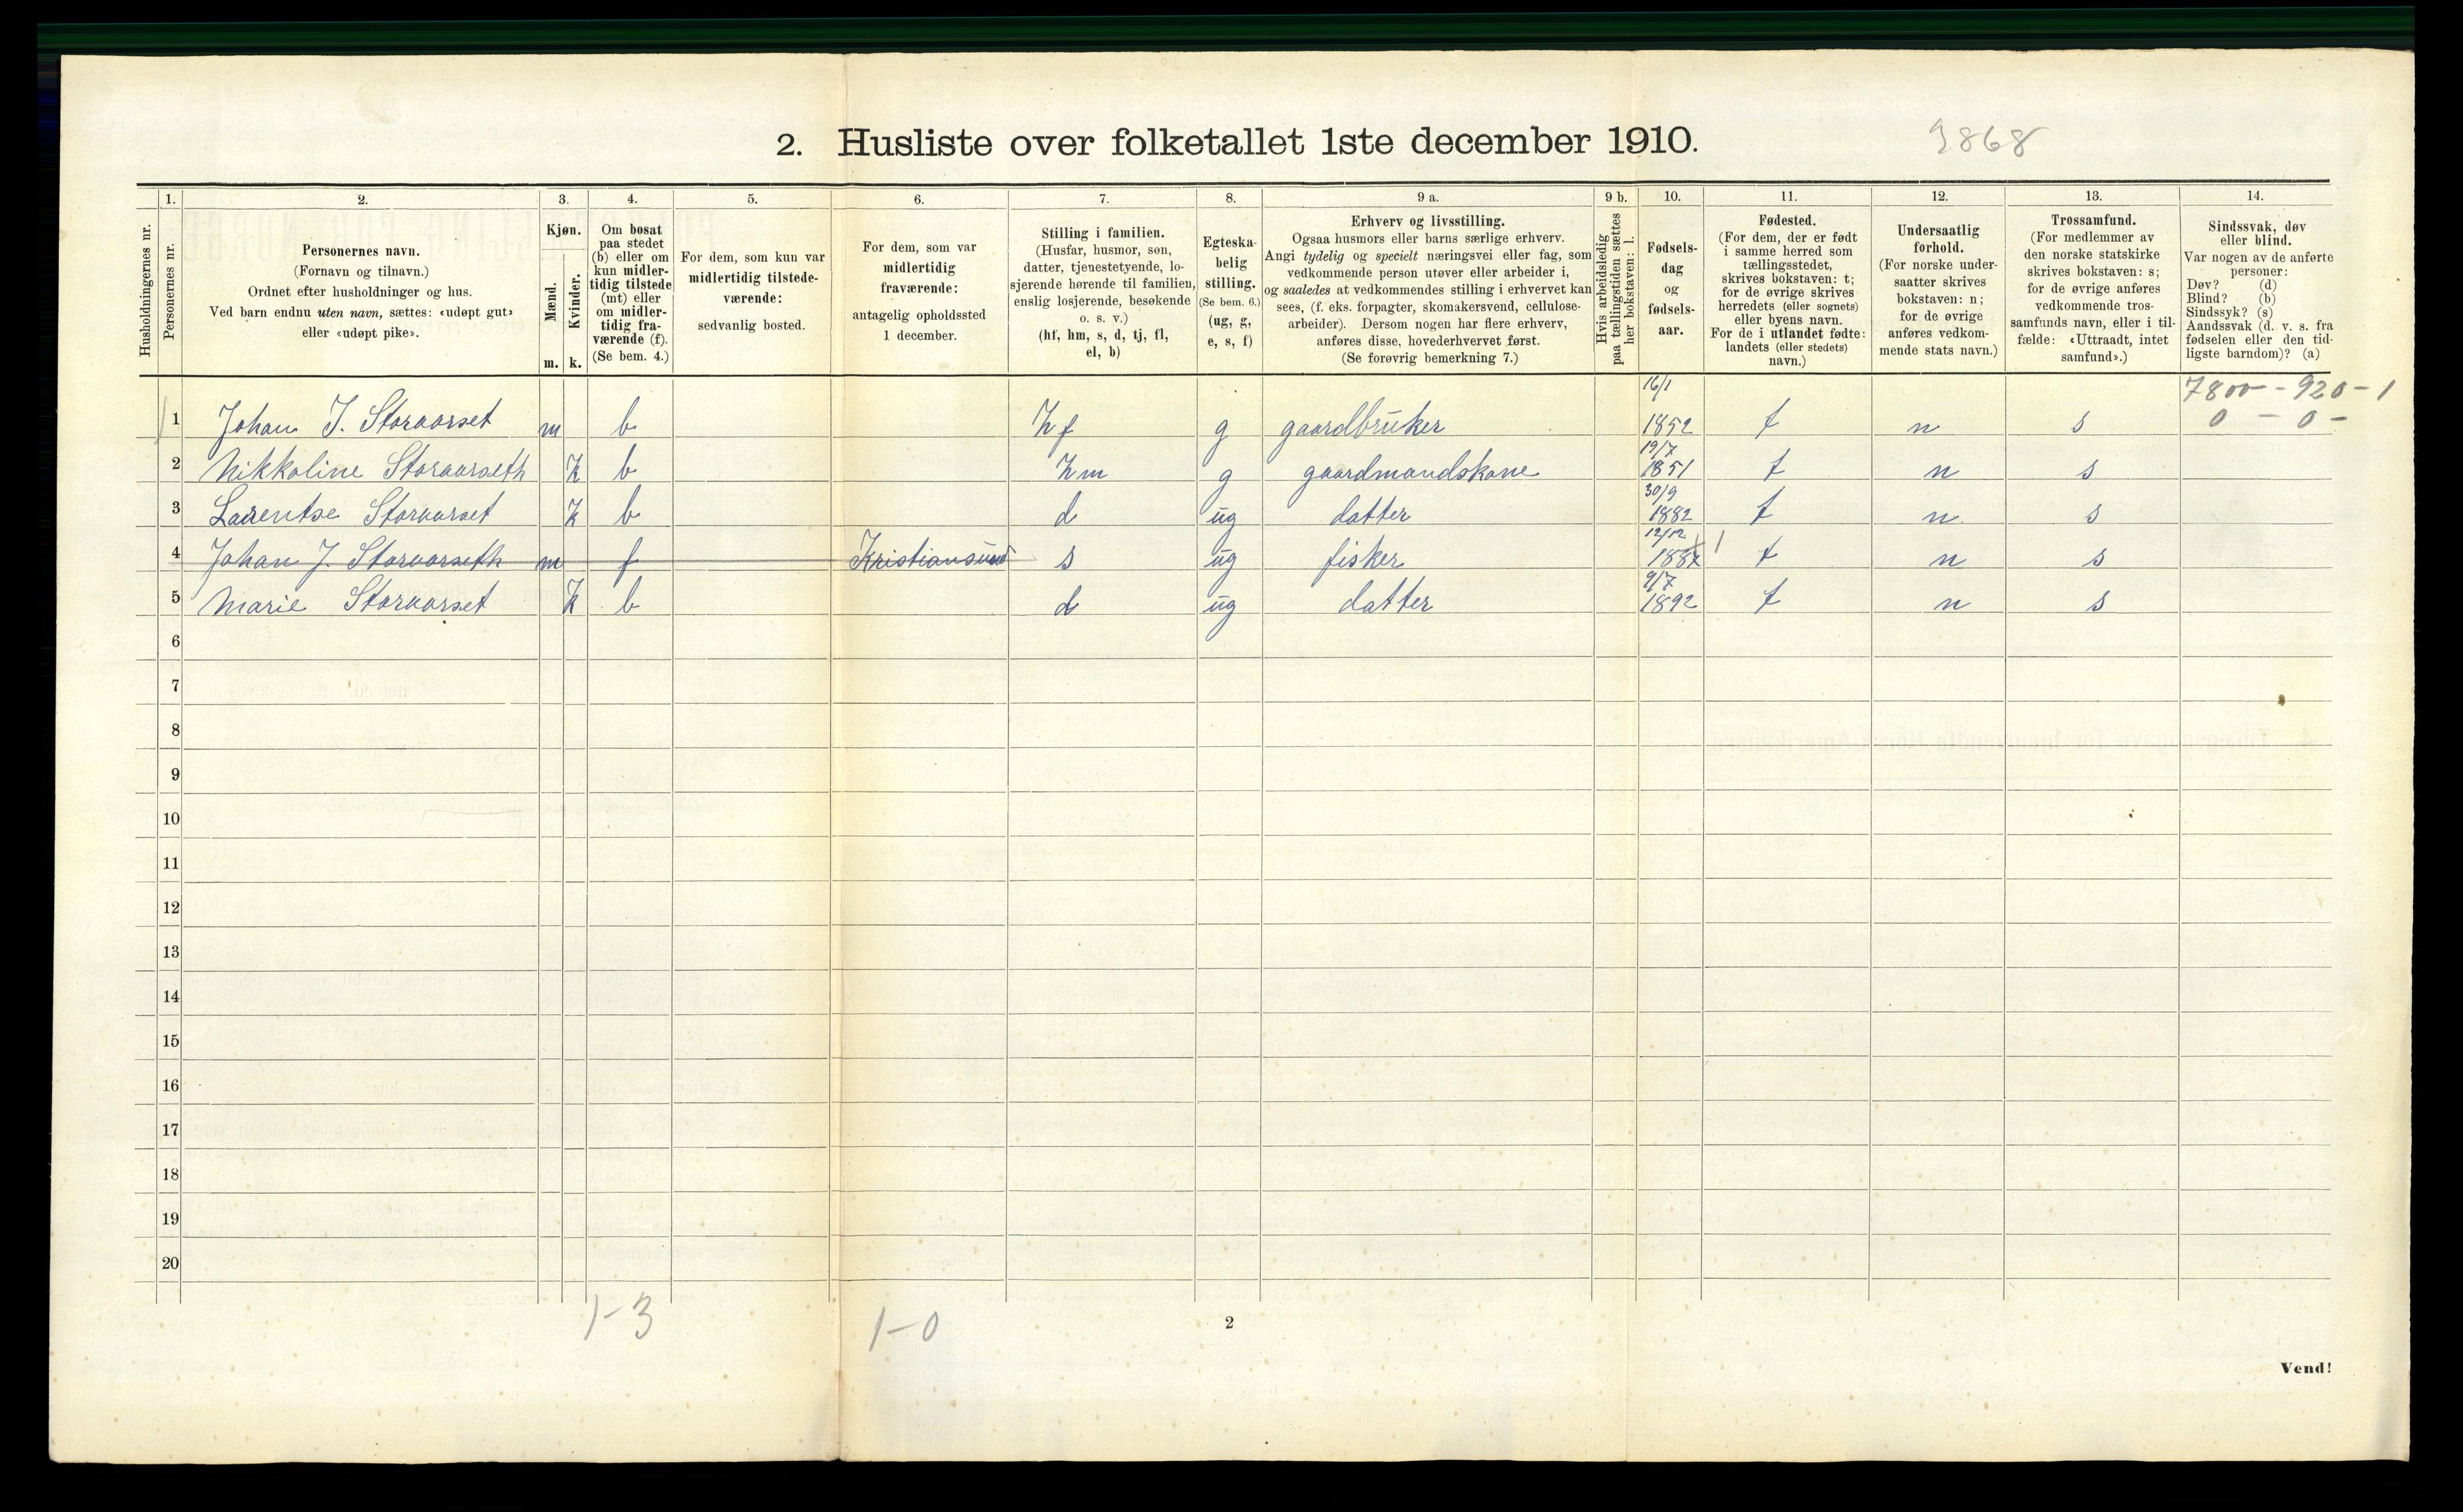 2. Husliste over folketallet 1ste december 1910.
3868
1.
2.
3.
4.
5.
6.
7.
8.
9 a.
9 b.
10.
11.
12.
13.
14.
Husholdningernes nr.
Personernes nr.
Personernes navn.
(Fornavn og tilnavn.)
Ordnet efter husholdninger og hus.
Ved barn endnu uten navn, sættes: «udøpt gut»
eller «udøpt pike».
Kjøn.
Mænd.
Kvinder.
m. k.
Om bosat
paa stedet
(b) eller om
kun midler-
tidig tilstede
(mt) eller
om midler-
tidig fra-
værende (f).
(Se bem. 4.)
For dem, som kun var
midlertidig tilstede-
værende:
sedvanlig bosted.
For dem, som var
midlertidig
fraværende:
antagelig opholdssted
1 december.
Stilling i familien.
(Husfar, husmor, søn,
datter, tjenestetyende, lo-
sjerende hørende til familien,
enslig losjerende, besøkende
o. s. v.)
(hf, hm, s, d, tj, fl,
el, b)
Egteska-
belig
stilling.
(Se bem. 6.)
(ug, g,
e, s, f)
Erhverv og livsstilling.
Ogsaa husmors eller barns særlige erhverv.
Angi tydelig og specielt næringsvei eller fag, som
vedkommende person utøver eller arbeider i,
og saaledes at vedkommendes stilling i erhvervet kan
sees, (f. eks. forpagter, skomakersvend, cellulose-
arbeider). Dersom nogen har flere erhverv,
anføres disse, hovederhvervet først.
(Se forøvrig bemerkning 7.)
Hvis arbeidsledig
paa tællingstiden sættes
her bokstaven: l.
Fødsels-
dag
og
fødsels-
aar.
Fødested.
(For dem, der er født
i samme herred som
tællingsstedet,
skrives bokstaven: t;
for de øvrige skrives
herredets (eller sognets)
eller byens navn.
For de i utlandet fødte:
landets (eller stedets)
navn.)
Undersaatlig
forhold.
(For norske under-
saatter skrives
bokstaven: n;
for de øvrige
anføres vedkom-
mende stats navn.)
Trossamfund.
(For medlemmer av
den norske statskirke
skrives bokstaven: s;
for de øvrige anføres
vedkommende tros-
samfunds navn, eller i til-
fælde: «Uttraadt, intet
samfund».)
Sindssvak, døv
eller blind.
Var nogen av de anførte
personer:
Døv? (d)
Blind? (b)
Sindssyk? (s)
Aandssvak (d. v. s. fra
fødselen eller den tid-
ligste barndom)? (a)
7800 - 920 - 1
0 - 0 -
1 Johan J. Storaarset m b hf g gaardbruker 16/1 1852 t n s
2 Nikkoline Storaarseth k b hm g gaardmandskone 19/7 1851 t n s
3 Larentse Storaarset k b d ug datter 30/9 1882 t n s
4 Johan J. Storaarseth m f Kristiansund s ug fisker 12/12 1887 t n s
5 Marie Storaarset k b d ug datter 9/7 1892 t n s
6
7
8
9
10
11
12
13
14
15
16
17
18
19
20
1-3
1-0
2
Vend!